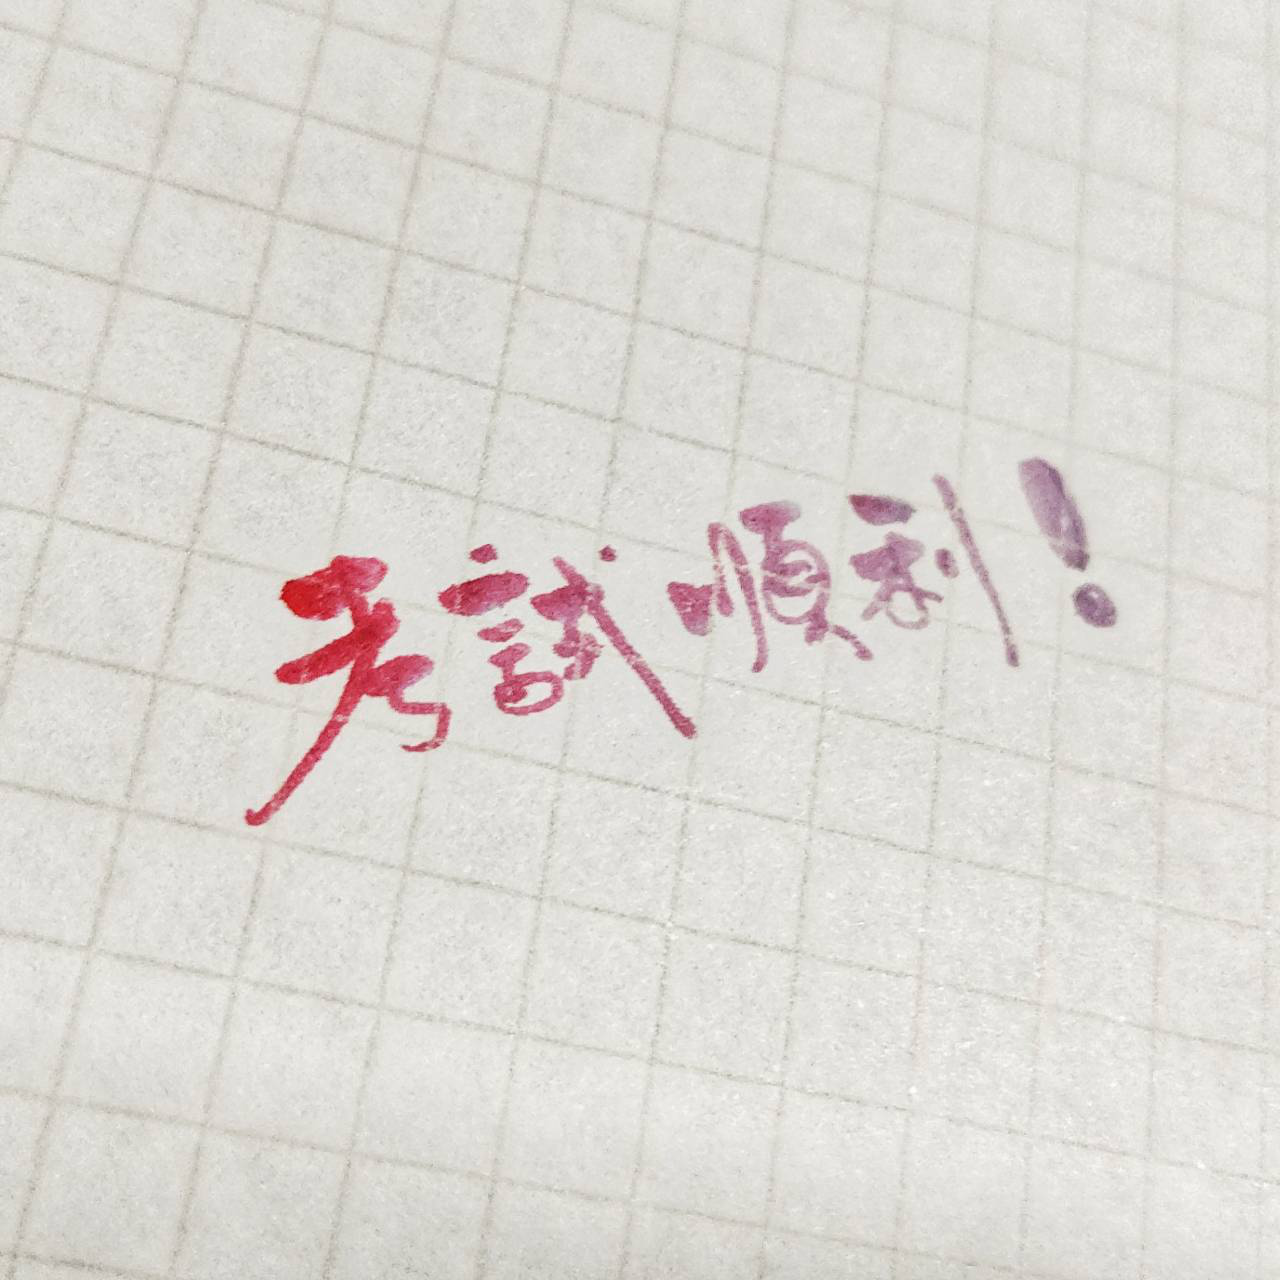 考試順利!